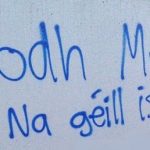 odh M
Na géill is